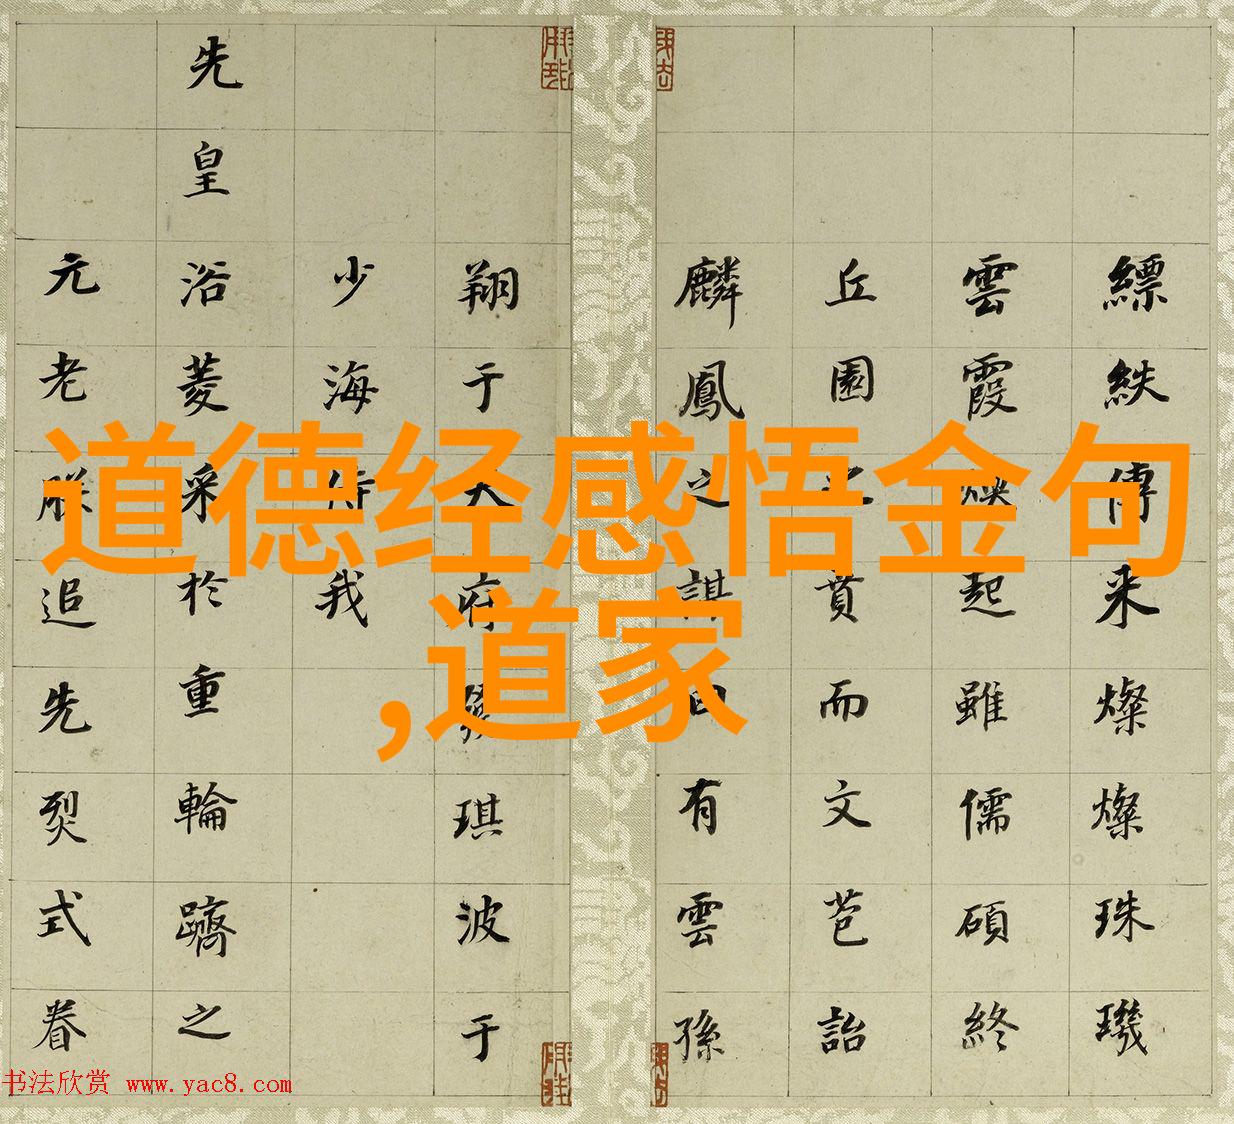 道德经感悟金句
,道家
縹帙傳来燦燦珠璣
雲霞煥起雖儒碩終
丘園之賁而文芑詒
麟鳳之諆曰有雲孫
翔于天府發琪波于
少海侍我
先皇浴菱采於重輪躋之
元老朕追先烈式眷
书法欣赏 www.yac8.com